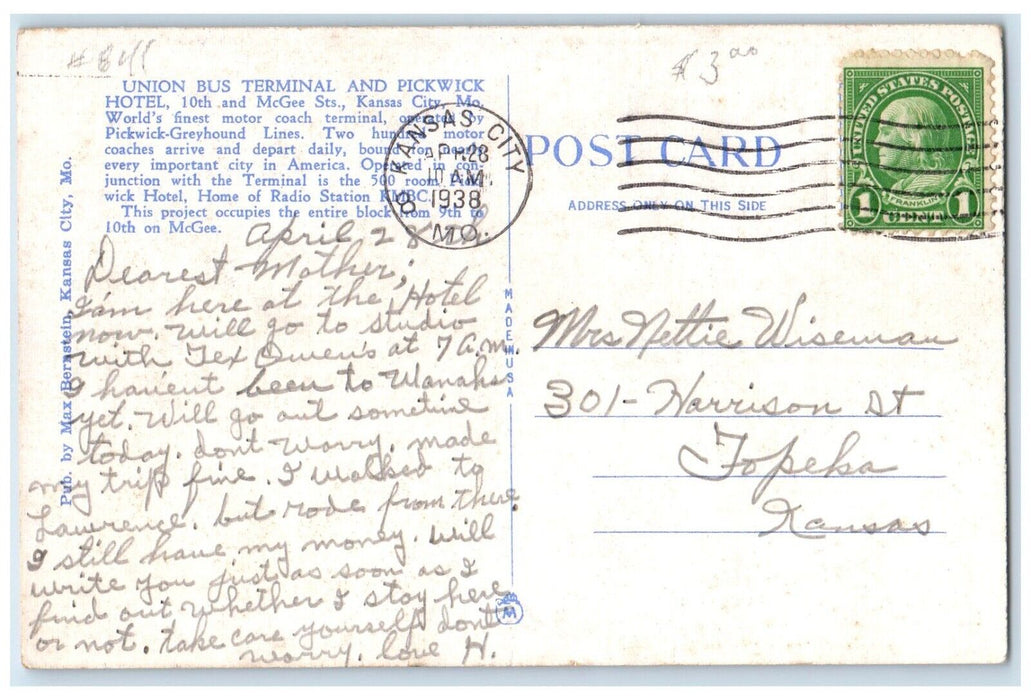 # 8411
$3.00
UNION BUS TERMINAL AND PICKWICK
HOTEL, 10th and McGee Sts., Kansas City, Mo.
World's finest motor coach terminal, operated by
Pickwick-Greyhound Lines. Two hundred motor
coaches arrive and depart daily, bound for nearly
every important city in America. Operated in con-
junction with the Terminal is the 500 room Pick-
wick Hotel, Home of Radio Station KMBC.
This project occupies the entire block from 9th to
10th on McGee.
Pub. by Max Bernstein, Kansas City, Mo.
KANSAS CITY
8
APR 28
10 AM
1938
MO.
POST CARD
ADDRESS ONLY ON THIS SIDE
UNITED STATES POSTAGE
FRANKLIN
1 1
MADE IN USA
April 28th
Dearest Mother;
I'am here at the Hotel
now. will go to studio
with Tex Owen's at 7 A.M.
I hav'ent been to Wanahs
yet. Will go out sometime
today. dont worry. made
my trip fine. I walked to
Lawrence. but rode from there
I still have my money. Will
write you just as soon as I
find out whether I stay here
or not. take care yourself dont
worry. love H.
Mrs Nettie Wiseman
301 - Harrison St
Topeka
Kansas